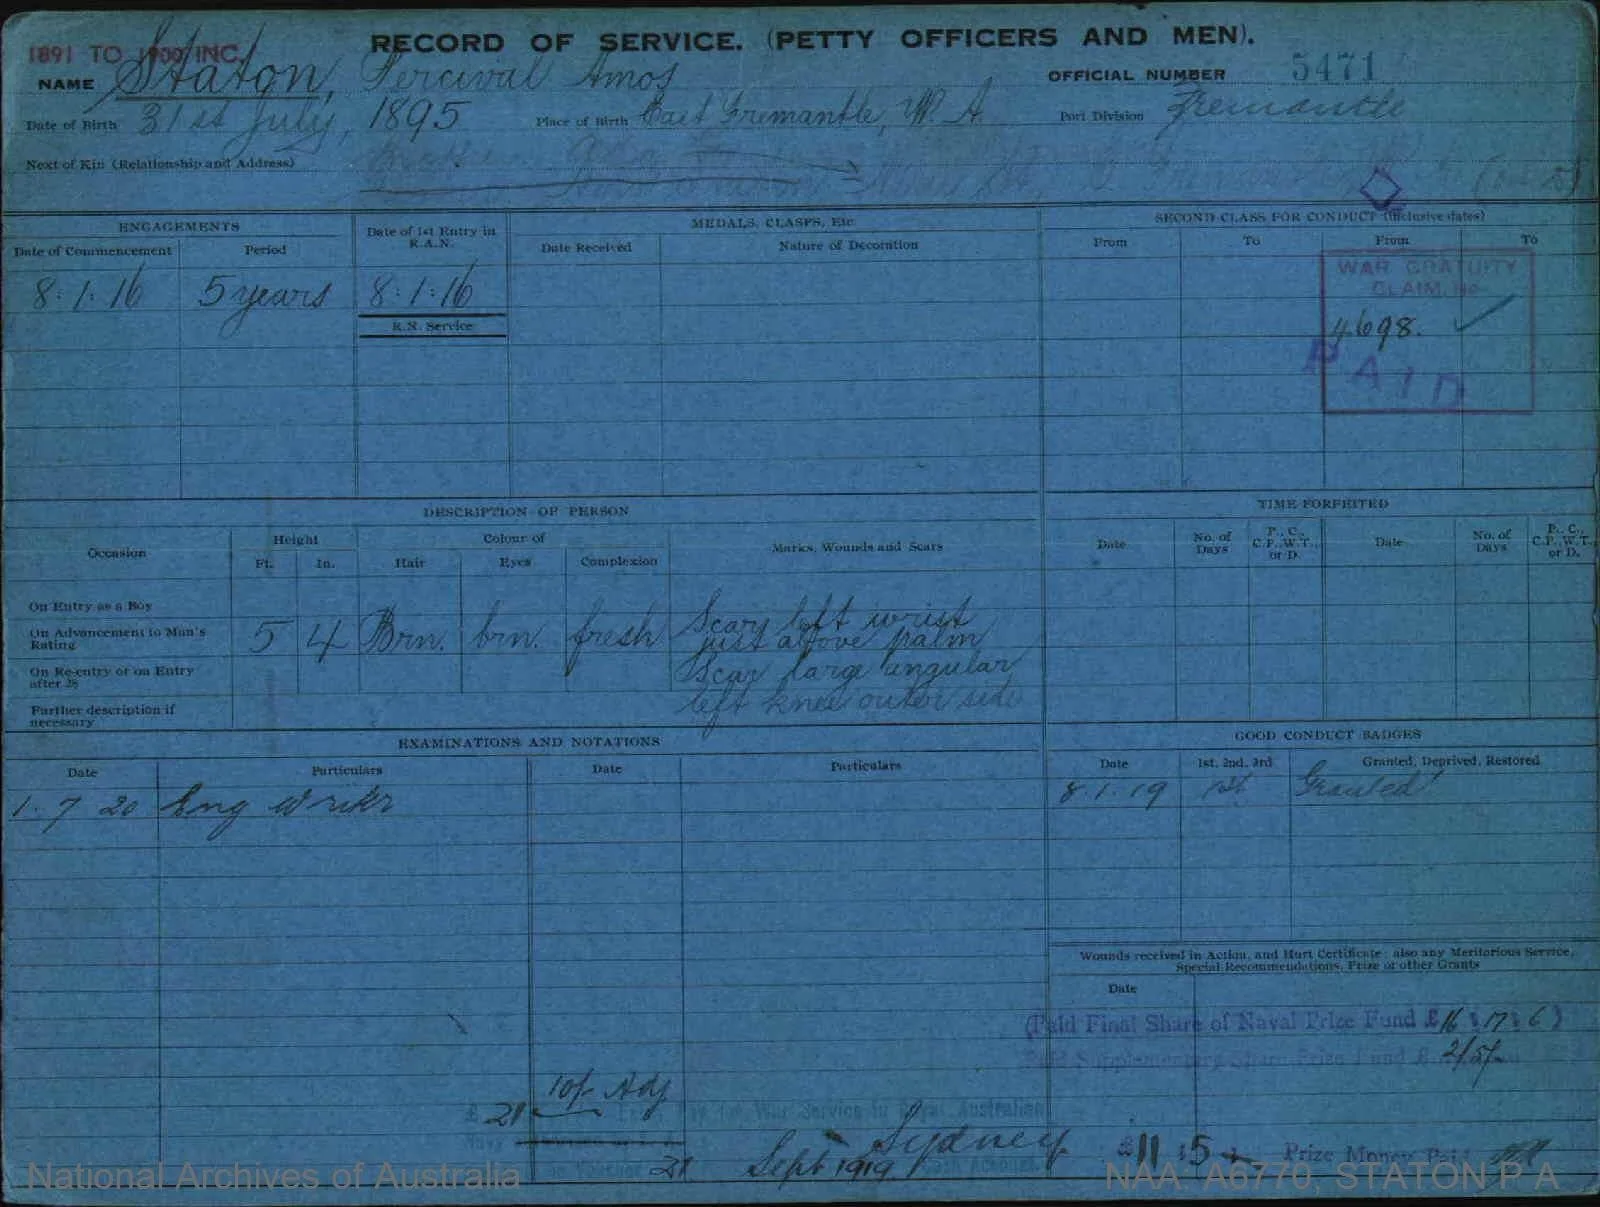 1891 TO 1900 INC.
RECORD OF SERVICE. (PETTY OFFICERS AND MEN).
NAME Staton, Percival Amos
OFFICIAL NUMBER 5471
Date of Birth 31st July, 1895 Place of Birth East Fremantle, W. A. Port Division Fremantle
Next of Kin (Relationship and Address)
ENGAGEMENTS
Date of Commencement Period
Date of 1st Entry in R.A.N.
MEDALS, CLASPS, Etc
Date Received Nature of Decoration
SECOND CLASS FOR CONDUCT (Inclusive dates)
From To From To
8:1:16 5 years 8:1:16
R.N. Service
WAR GRATUITY
CLAIM, No
4698.
PAID
DESCRIPTION OF PERSON
Occasion Height Colour of Marks, Wounds and Scars
Ft. In. Hair Eyes Complexion
On Entry as a Boy
On Advancement to Man's Rating 5 4 Brn. brn. fresh
Scar left wrist
just above palm
Scar large angular
left knee outer side
On Re-entry or on Entry after 28
Further description if necessary
TIME FORFEITED
Date No. of Days P., C., C.P.,W.T., or D. Date No. of Days P., C., C.P.,W.T., or D.
EXAMINATIONS AND NOTATIONS
Date Particulars Date Particulars
1. 7 20 Eng
GOOD CONDUCT BADGES
Date 1st, 2nd, 3rd Granted, Deprived, Restored
8.1.19 1st Granted
Wounds received in Action, and Hurt Certificate; also any Meritorious Service,
Special Recommendations, Prize or other Grants
Date
(Paid Final Share of Naval Prize Fund £16:17:6)
Paid Supplementary Share Prize Fund £ 2/5/-
10/- Adj
£21 for War Service in Royal Australian
Navy
21 Sept 1919 Sydney
£11:5:- Prize Money Paid
National Archives of Australia
NAA: A6770, STATON P A